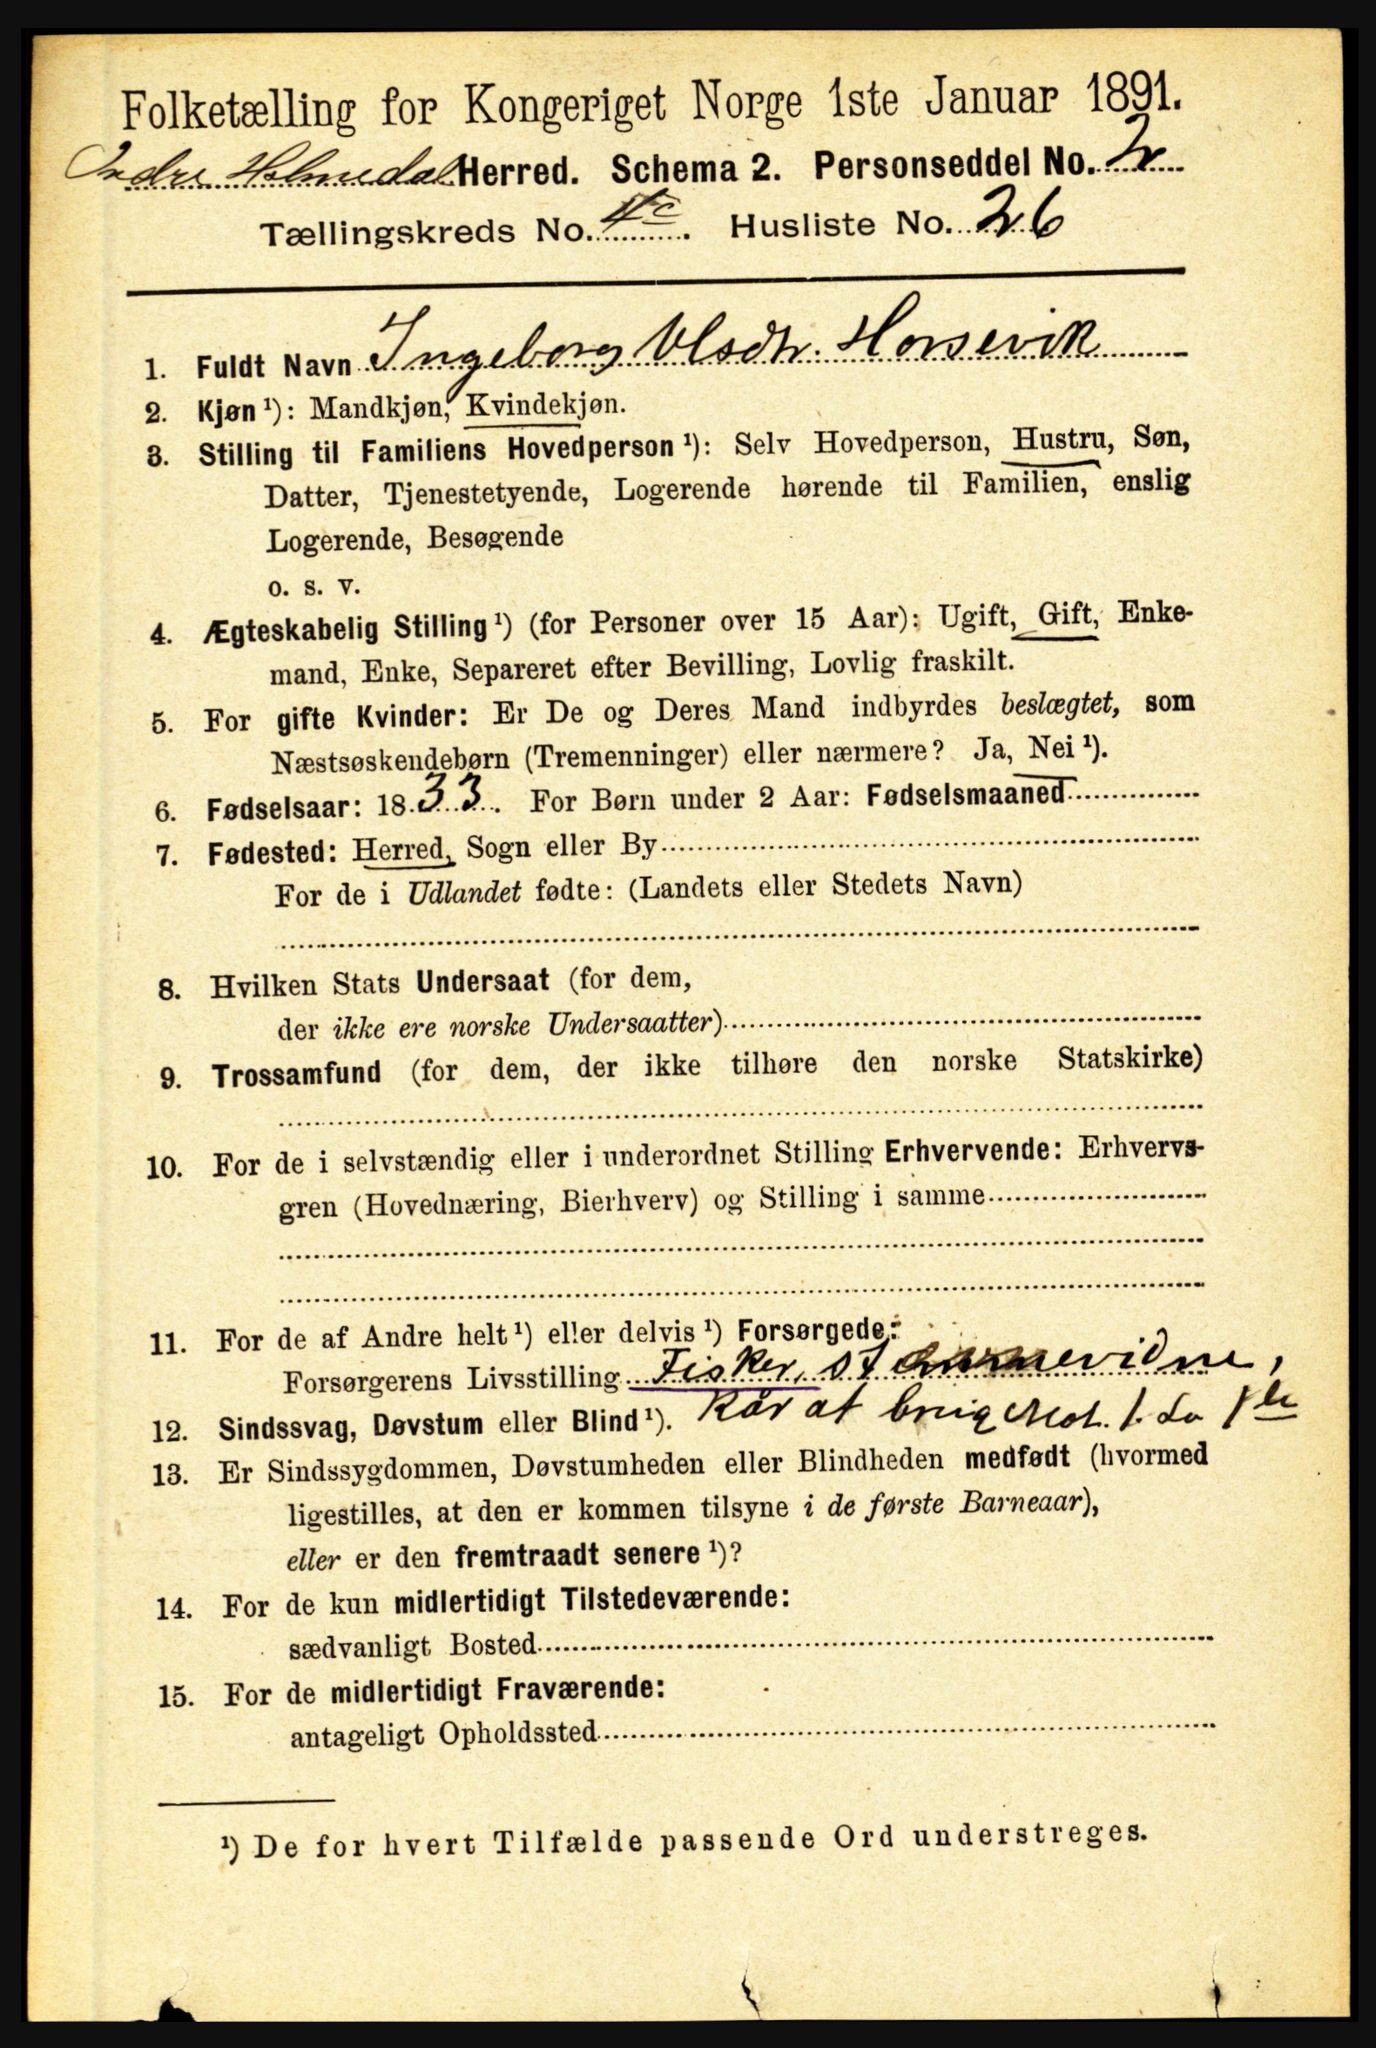 Folketælling for Kongeriget Norge 1ste Januar 1891.
Indre Holmedal Herred. Schema 2. Personseddel No. 2
Tællingskreds No. 4c. Husliste No. 26
1. Fuldt Navn Ingeborg Olsdtr. Horsevik
2. Kjøn¹): Mandkjøn, Kvindekjøn.
3. Stilling til Familiens Hovedperson¹): Selv Hovedperson, Hustru, Søn,
Datter, Tjenestetyende, Logerende hørende til Familien, enslig
Logerende, Besøgende
o. s. v.
4. Ægteskabelig Stilling¹) (for Personer over 15 Aar): Ugift, Gift, Enke-
mand, Enke, Separeret efter Bevilling, Lovlig fraskilt.
5. For gifte Kvinder: Er De og Deres Mand indbyrdes beslægtet, som
Næstsøskendebørn (Tremenninger) eller nærmere? Ja, Nei¹).
6. Fødselsaar: 1833. For Børn under 2 Aar: Fødselsmaaned
7. Fødested: Herred, Sogn eller By
For de i Udlandet fødte: (Landets eller Stedets Navn)
8. Hvilken Stats Undersaat (for dem,
der ikke ere norske Undersaatter)
9. Trossamfund (for dem, der ikke tilhøre den norske Statskirke)
10. For de i selvstændig eller i underordnet Stilling Erhvervende: Erhvervs-
gren (Hovednæring, Bierhverv) og Stilling i samme
11. For de af Andre helt¹) eller delvis¹) Forsørgede:
Forsørgerens Livsstilling Fisker,
12. Sindssvag, Døvstum eller Blind¹). Kår af
13. Er Sindssygdommen, Døvstumheden eller Blindheden medfødt (hvormed
ligestilles, at den er kommen tilsyne i de første Barneaar),
eller er den fremtraadt senere¹)?
14. For de kun midlertidigt Tilstedeværende:
sædvanligt Bosted
15. For de midlertidigt Fraværende:
antageligt Opholdssted
¹) De for hvert Tilfælde passende Ord understreges.